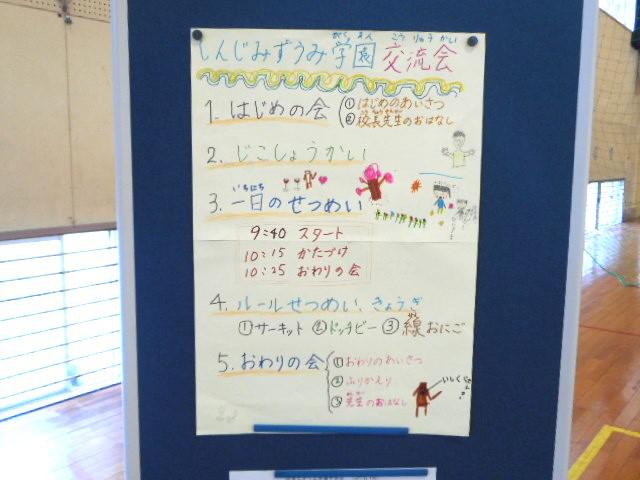 しんじみずうみ学園 交流会
がく えん こう りゅう かい
1. はじめの会
① はじめのあいさつ
② 校長先生のおはなし
2. じこしょうかい
いちにち
3. 一日のせつめい
9:40 スタート
10:15 かたづけ
10:25 おわりの会
4. ルールせつめい、きょうぎ
①サーキット ②ドッチビー ③線おにご
5. おわりの会
① おわりのあいさつ
② ふりかえり
③ 先生のおはなし